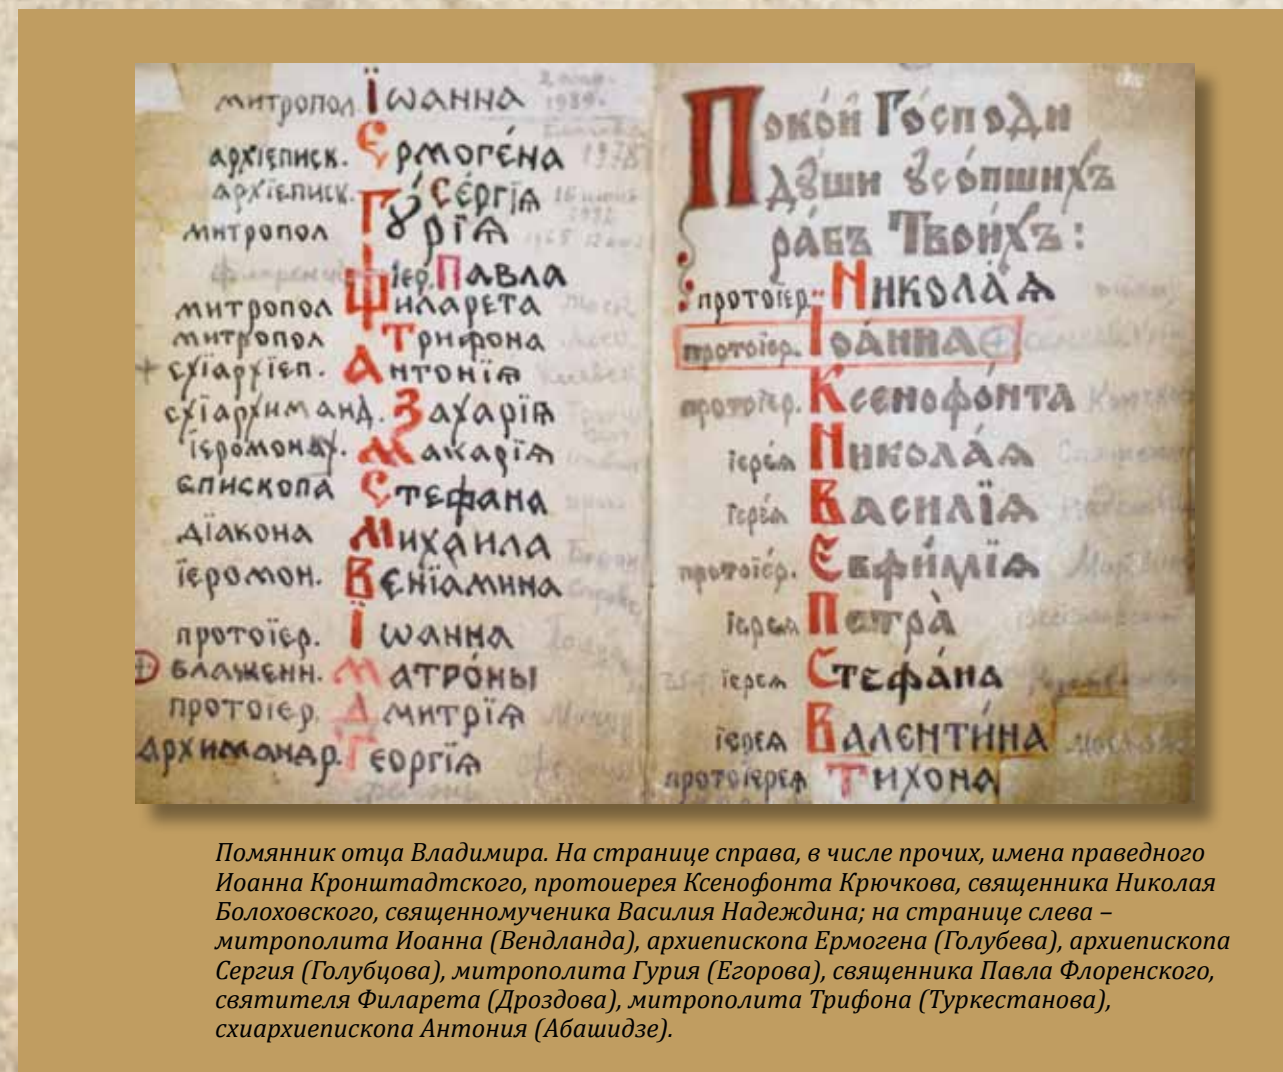 митропол Їѡанна
архїеписк. Ермоге́на 1978
архїеписк. Се́ргїѧ
митропол Гу́рїѧ
їер. Павла
митропол Филарета
митропол Трифона
схїархїеп. Антонїѧ
схїархиманд. Захарїѧ
їеромонах. Макарїѧ
епископа Стефана
дїакона Михаила
їеромон. Венїамина
протоїер. Їѡанна
блаженн. Матро́ны
протоїер. Дмитрїѧ
архимандр. Георгїѧ
Поко́й Го́споди
дꙋ́ши ꙋсо́пшихъ
ра́бъ Твои́хъ:
протоїер. Никола́ѧ
протоїер. Їоа́нна
протоїер. Ксенофо́нта
їере́ѧ Никола́ѧ
їере́ѧ Васи́лїѧ
протоїе́р. Евфи́мїѧ
їереѧ Петра̀
їереѧ Стефа́на
їереѧ Валенти́на
протоїереѧ Тихона
Помянник отца Владимира. На странице справа, в числе прочих, имена праведного
Иоанна Кронштадтского, протоиерея Ксенофонта Крючкова, священника Николая
Болоховского, священномученика Василия Надеждина; на странице слева –
митрополита Иоанна (Вендланда), архиепископа Ермогена (Голубева), архиепископа
Сергия (Голубцова), митрополита Гурия (Егорова), священника Павла Флоренского,
святителя Филарета (Дроздова), митрополита Трифона (Туркестанова),
схиархиепископа Антония (Абашидзе).